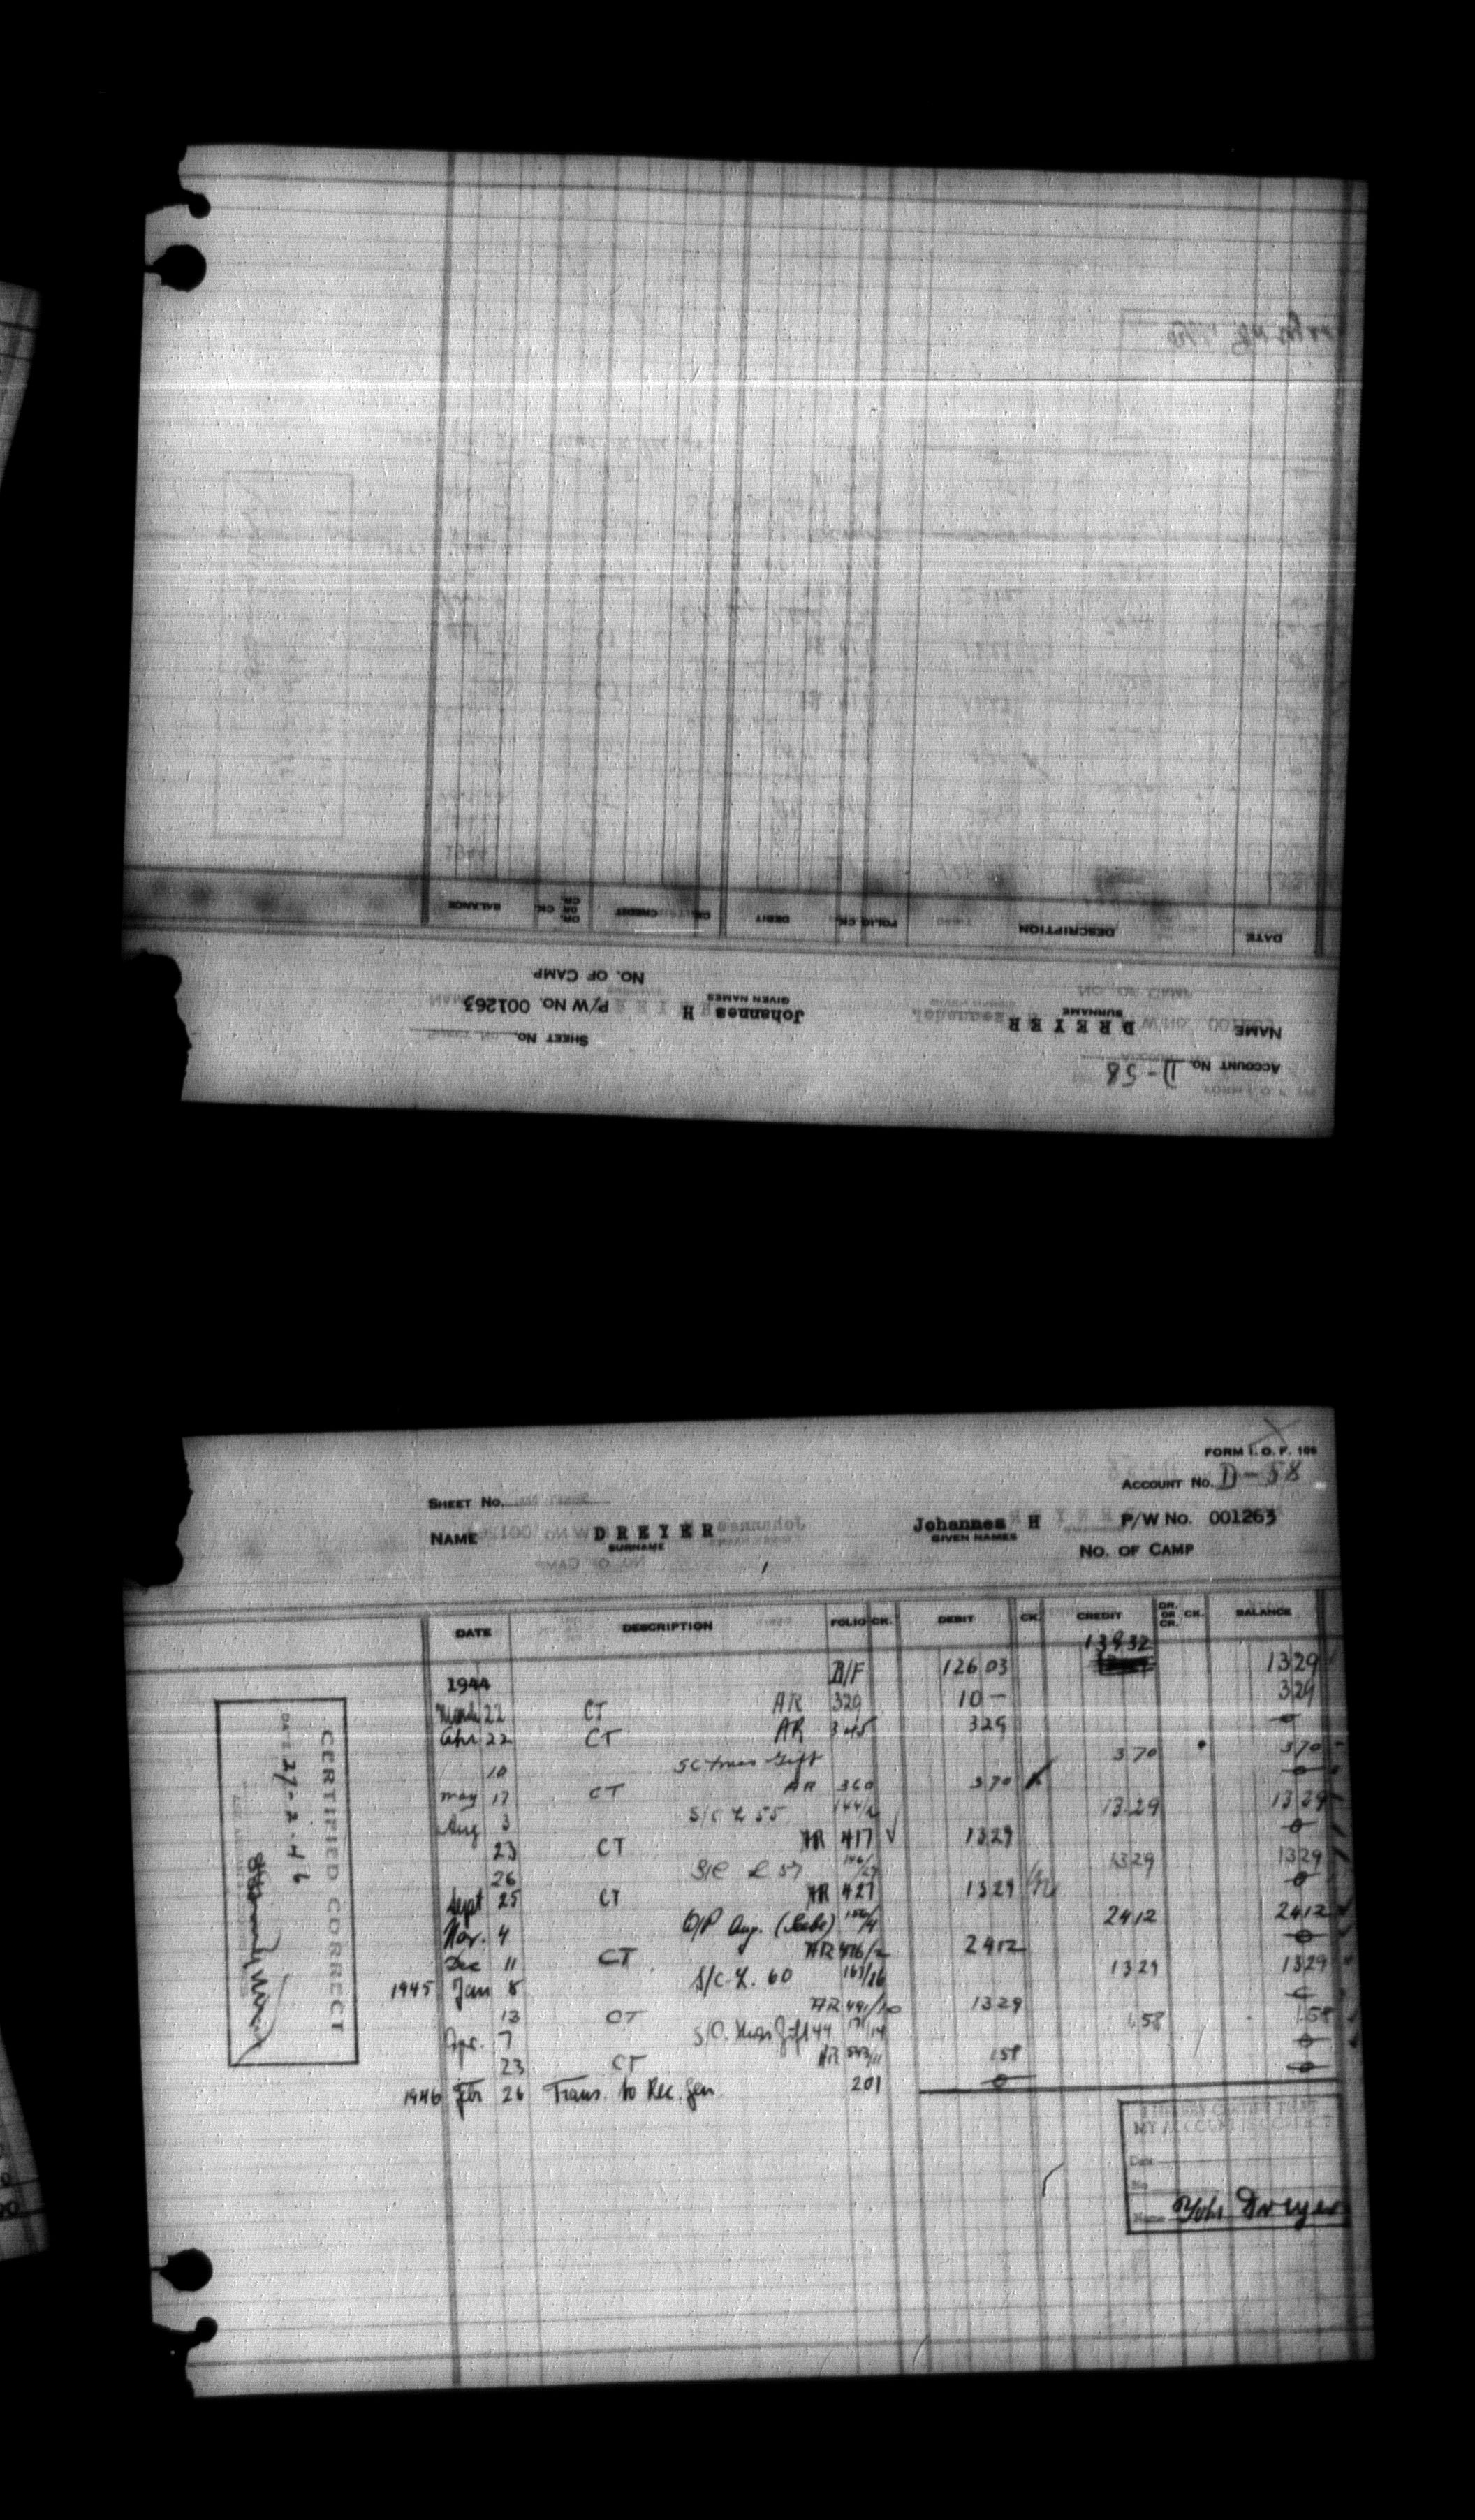 DATE
DESCRIPTION
FOLIO CK.
DEBIT
CK.
CREDIT
DR. OR CR.
CK.
BALANCE
NO. OF CAMP
NAME DREYER Johannes H P/W No. 001263
SURNAME GIVEN NAMES
SHEET No.
ACCOUNT No. D-58
FORM I. O. F. 106
ACCOUNT No. D-58
SHEET No.
NAME DREYER Johannes H P/W No. 001263
SURNAME GIVEN NAMES
NO. OF CAMP
DATE DESCRIPTION FOLIO CK. DEBIT CK. CREDIT DR. OR CR. CK. BALANCE
13932
1944 B/F 126 03 13 29
March 22 CT AR 329 10 — 3 29
Apr 22 CT AR 345 3 29 0
10 SC Gift 3 70 3 70
May 17 CT AR 360 3 70 0
Aug 3 S/C L 55 144/2 13.29 13 29
23 CT AR 417 13 29 0
26 S/C L 57 13 29 13 29
Sept 25 CT AR 427 13 29 0
Nov. 4 O/P Aug. 24 12 24 12
Dec 11 CT AR 476/2 24 12 0
1945 Jan 8 S/C L. 60 167/26 13 29 13 29
13 CT AR 491/20 13 29 0
Apr. 7 S/C. Xmas Gift 44 171/14 1.58 1.58
23 CT AR 1 58 0
1946 Feb 26 Trans. to Rec. Gen. 201 0 0
CERTIFIED CORRECT
DATE 27-2-46
I HEREBY CERTIFY THAT
MY ACCOUNT IS CORRECT
Date
No.
Name Johs Dreyer